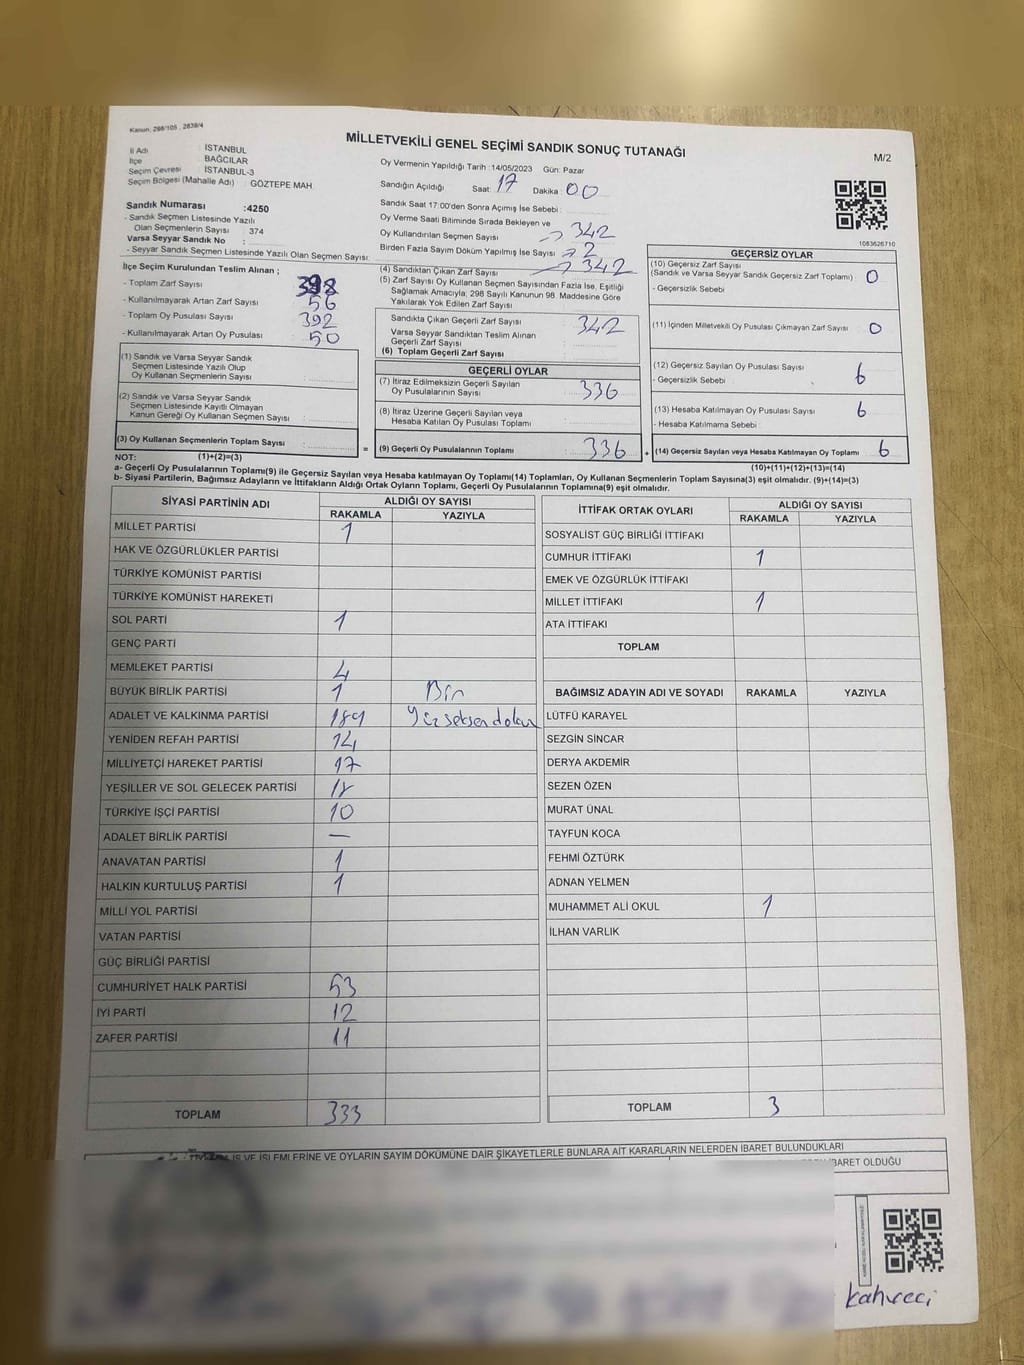 Kanun, 298/105 , 2839/4
MİLLETVEKİLİ GENEL SEÇİMİ SANDIK SONUÇ TUTANAĞI
M/2
İl Adı : İSTANBUL
İlçe : BAĞCILAR
Seçim Çevresi : İSTANBUL-3
Seçim Bölgesi (Mahalle Adı) : GÖZTEPE MAH
Sandık Numarası :4250
- Sandık Seçmen Listesinde Yazılı
Olan Seçmenlerin Sayısı : 374
Varsa Seyyar Sandık No :
- Seyyar Sandık Seçmen Listesinde Yazılı Olan Seçmen Sayısı:
Oy Vermenin Yapıldığı Tarih :14/05/2023 Gün: Pazar
Sandığın Açıldığı Saat: 17 Dakika : 00
Sandık Saat 17:00'den Sonra Açımış İse Sebebi :
Oy Verme Saati Bitiminde Sırada Bekleyen ve
Oy Kullandırılan Seçmen Sayısı 342
Birden Fazla Sayım Döküm Yapılmış İse Sayısı 2
1083626710
İlçe Seçim Kurulundan Teslim Alınan ;
- Toplam Zarf Sayısı :
- Kullanılmayarak Artan Zarf Sayısı : 56
- Toplam Oy Pusulası Sayısı : 392
- Kullanılmayarak Artan Oy Pusulası : 50
(1) Sandık ve Varsa Seyyar Sandık
Seçmen Listesinde Yazılı Olup
Oy Kullanan Seçmenlerin Sayısı :
(2) Sandık ve Varsa Seyyar Sandık
Seçmen Listesinde Kayıtlı Olmayan
Kanun Gereği Oy Kullanan Seçmen Sayısı :
(3) Oy Kullanan Seçmenlerin Toplam Sayısı :
(4) Sandıktan Çıkan Zarf Sayısı 342
(5) Zarf Sayısı Oy Kullanan Seçmen Sayısından Fazla İse, Eşitliği
Sağlamak Amacıyla, 298 Sayılı Kanunun 98. Maddesine Göre
Yakılarak Yok Edilen Zarf Sayısı :
Sandıkta Çıkan Geçerli Zarf Sayısı : 342
Varsa Seyyar Sandıktan Teslim Alınan
Geçerli Zarf Sayısı :
(6) Toplam Geçerli Zarf Sayısı :
GEÇERLİ OYLAR
(7) İtiraz Edilmeksizin Geçerli Sayılan
Oy Pusulalarının Sayısı : 336
(8) İtiraz Üzerine Geçerli Sayılan veya
Hesaba Katılan Oy Pusulası Toplamı :
= (9) Geçerli Oy Pusulalarının Toplamı : 336
GEÇERSİZ OYLAR
(10) Geçersiz Zarf Sayısı
(Sandık ve Varsa Seyyar Sandık Geçersiz Zarf Toplamı) : 0
- Geçersizlik Sebebi :
(11) İçinden Milletvekili Oy Pusulası Çıkmayan Zarf Sayısı : 0
(12) Geçersiz Sayılan Oy Pusulası Sayısı : 6
- Geçersizlik Sebebi :
(13) Hesaba Katılmayan Oy Pusulası Sayısı : 6
- Hesaba Katılmama Sebebi :
+ (14) Geçersiz Sayılan veya Hesaba Katılmayan Oy Toplamı : 6
NOT: (1)+(2)=(3)
(10)+(11)+(12)+(13)=(14)
a- Geçerli Oy Pusulalarının Toplamı(9) ile Geçersiz Sayılan veya Hesaba katılmayan Oy Toplamı(14) Toplamları, Oy Kullanan Seçmenlerin Toplam Sayısına(3) eşit olmalıdır. (9)+(14)=(3)
b- Siyasi Partilerin, Bağımsız Adayların ve İttifakların Aldığı Ortak Oyların Toplamı, Geçerli Oy Pusulalarının Toplamına(9) eşit olmalıdır.
SİYASİ PARTİNİN ADI ALDIĞI OY SAYISI
RAKAMLA YAZIYLA
MİLLET PARTİSİ 1
HAK VE ÖZGÜRLÜKLER PARTİSİ
TÜRKİYE KOMÜNİST PARTİSİ
TÜRKİYE KOMÜNİST HAREKETİ
SOL PARTİ 1
GENÇ PARTİ
MEMLEKET PARTİSİ 4
BÜYÜK BİRLİK PARTİSİ 1 Bir
ADALET VE KALKINMA PARTİSİ 189 Yüzseksendokuz
YENİDEN REFAH PARTİSİ 14
MİLLİYETÇİ HAREKET PARTİSİ 17
YEŞİLLER VE SOL GELECEK PARTİSİ 18
TÜRKİYE İŞÇİ PARTİSİ 10
ADALET BİRLİK PARTİSİ —
ANAVATAN PARTİSİ 1
HALKIN KURTULUŞ PARTİSİ 1
MİLLİ YOL PARTİSİ
VATAN PARTİSİ
GÜÇ BİRLİĞİ PARTİSİ
CUMHURİYET HALK PARTİSİ 53
İYİ PARTİ 12
ZAFER PARTİSİ 11
TOPLAM 333
İTTİFAK ORTAK OYLARI ALDIĞI OY SAYISI
RAKAMLA YAZIYLA
SOSYALİST GÜÇ BİRLİĞİ İTTİFAKI
CUMHUR İTTİFAKI 1
EMEK VE ÖZGÜRLÜK İTTİFAKI
MİLLET İTTİFAKI 1
ATA İTTİFAKI
TOPLAM
BAĞIMSIZ ADAYIN ADI VE SOYADI RAKAMLA YAZIYLA
LÜTFÜ KARAYEL
SEZGİN SİNCAR
DERYA AKDEMİR
SEZEN ÖZEN
MURAT ÜNAL
TAYFUN KOCA
FEHMİ ÖZTÜRK
ADNAN YELMEN
MUHAMMET ALİ OKUL 1
İLHAN VARLIK
TOPLAM 3
İŞ VE İŞLEMLERİNE VE OYLARIN SAYIM DÖKÜMÜNE DAİR ŞİKAYETLERLE BUNLARA AİT KARARLARIN NELERDEN İBARET BULUNDUKLARI
İBARET OLDUĞU
kahveci